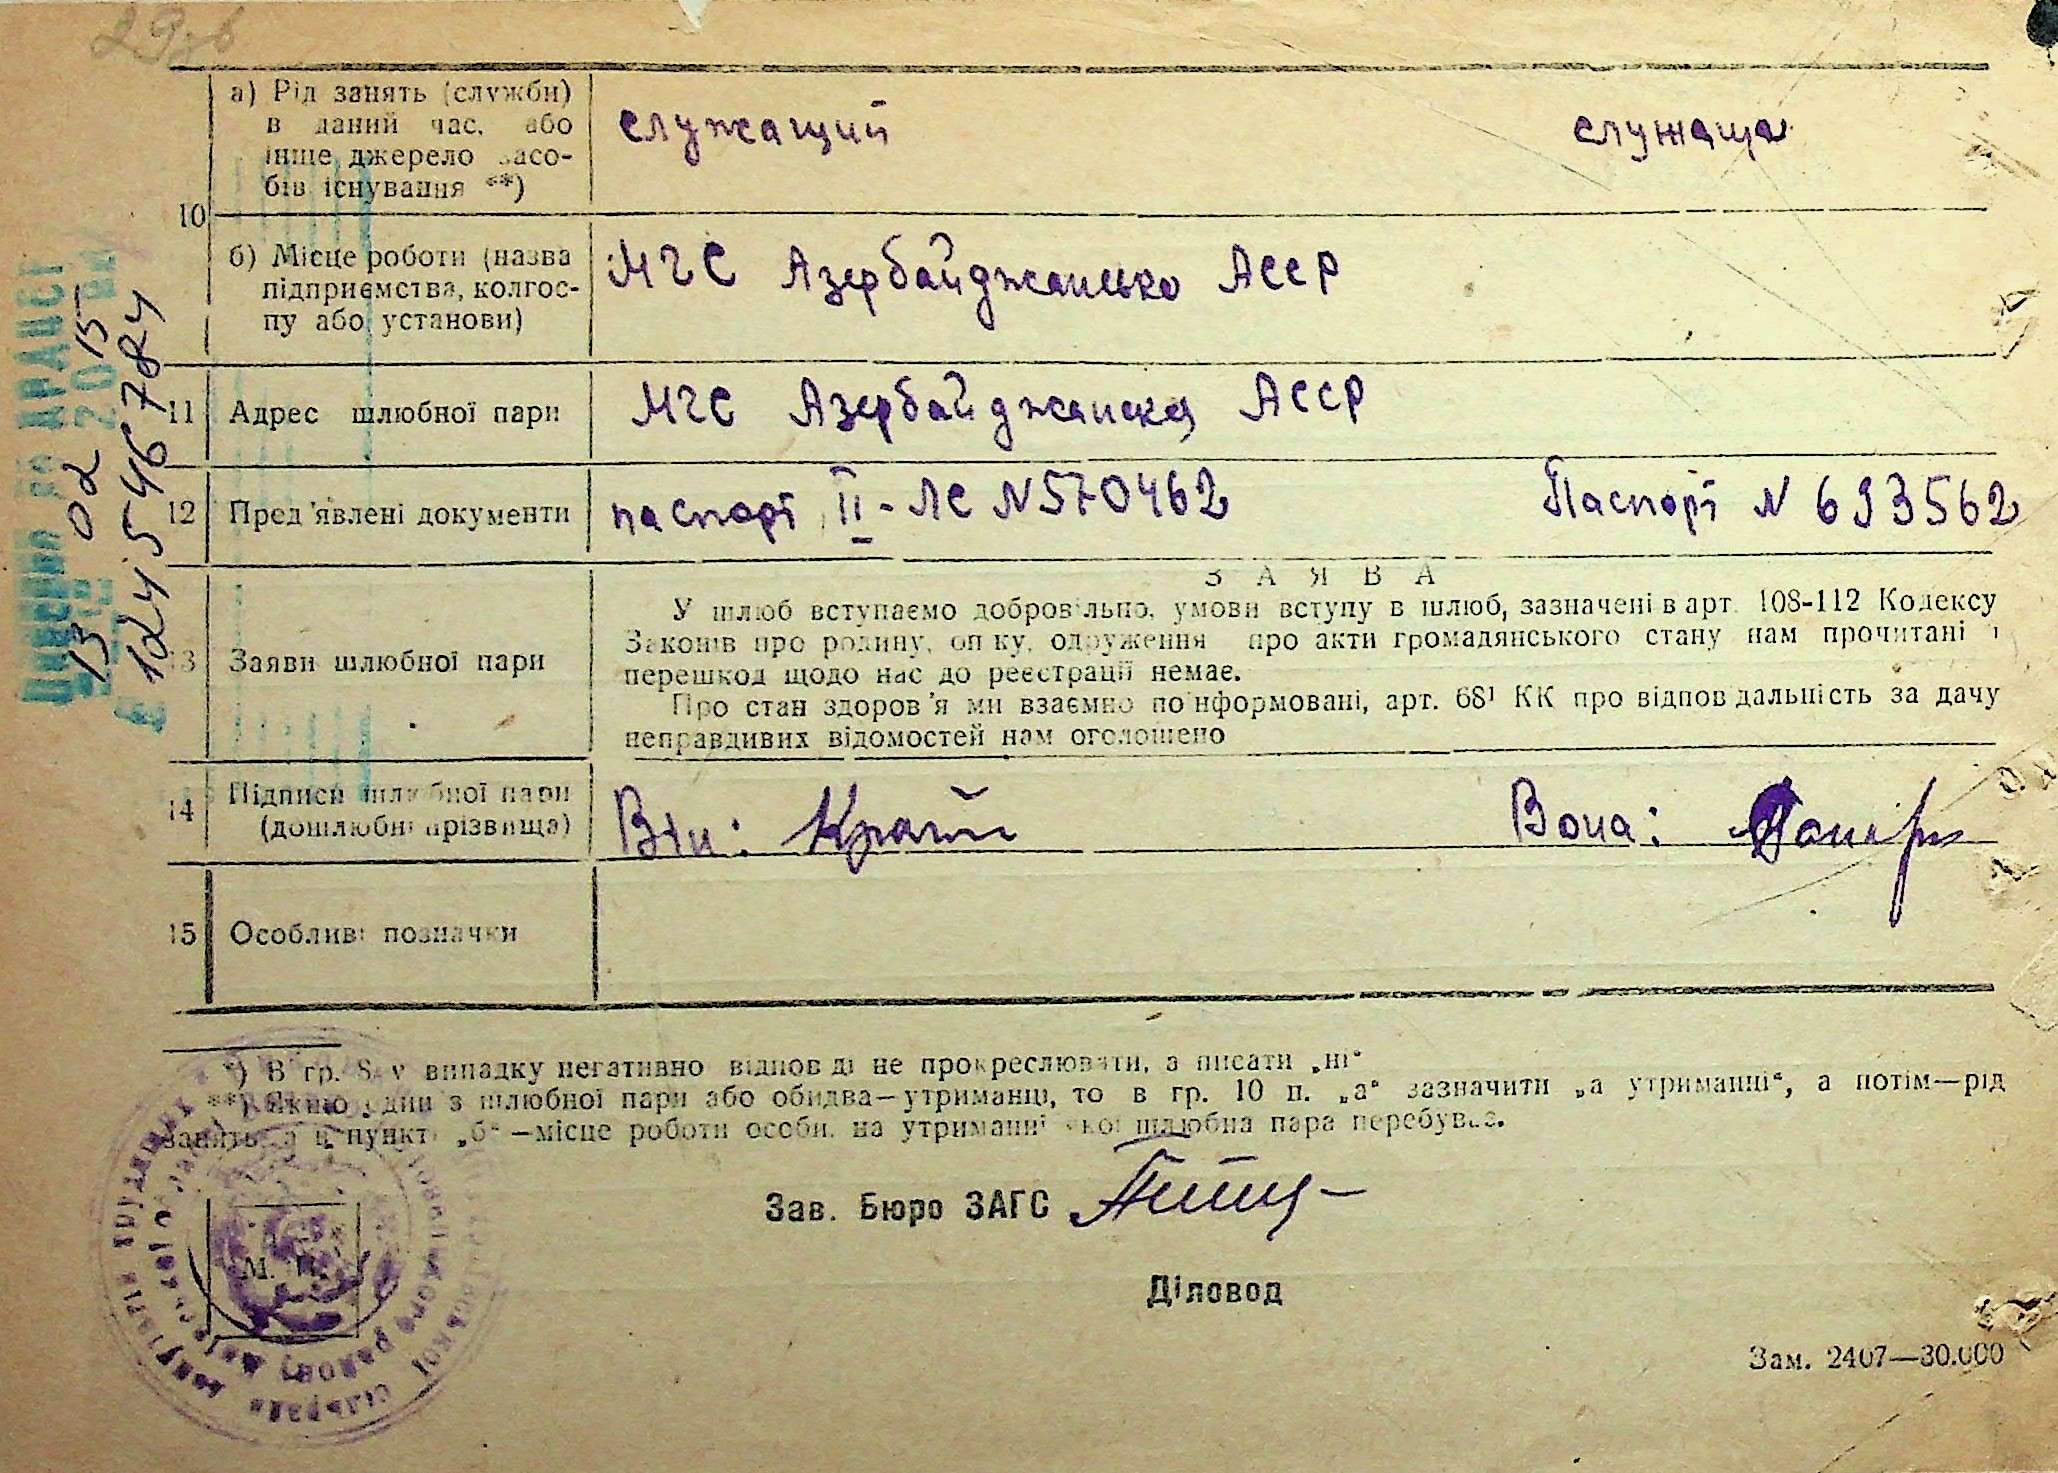 а) Рід занять (служби)
в даний час, або
інше джерело засо-
бів існування **)
служащий служаща
10
б) Місце роботи (назва
підприємства, колгос-
пу або установи)
МЧС Азербайджансько АССР
11 Адрес шлюбної пари
МЧС Азербайджанска АССР
12 Пред'явлені документи
паспорт II-ЛС N 570462 Паспорт N 693562
13 Заяви шлюбної пари
ЗАЯВА
У шлюб вступаємо добровільно, умови вступу в шлюб, зазначені в арт. 108-112 Кодексу
Законів про родину, опіку, одруження про акти громадянського стану нам прочитані і
перешкод щодо нас до реєстрації немає.
Про стан здоров'я ми взаємно поінформовані, арт. 68¹ КК про відповідальність за дачу
неправдивих відомостей нам оголошено
14 Підписи шлюбної пари
(дошлюбні прізвища)
Він: Вона:
15 Особливі позначки
*) В гр. 8 у випадку негативно відповіді не прокреслювати, а писати „ні“
**) Якщо один з шлюбної пари або обидва—утриманці, то в гр. 10 п. „а“ зазначити „а утриманні“, а потім—рід
занять, а в пункті „б“—місце роботи особи, на утриманні якої шлюбна пара перебуває.
Зав. Бюро ЗАГС
Діловод
М. П.
Зам. 2407—30.000
ДРАЦС
13 02 2015